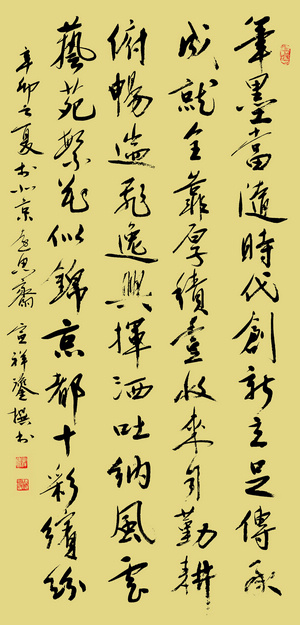 筆墨當隨時代創新立足傳承
成就全靠厚績豐收來自勤耕
俯暢遄飛逸興揮洒吐納風雲
藝苑繁花似錦京都十彩繽紛
辛卯之夏于北京思齋宣祥鎏撰书